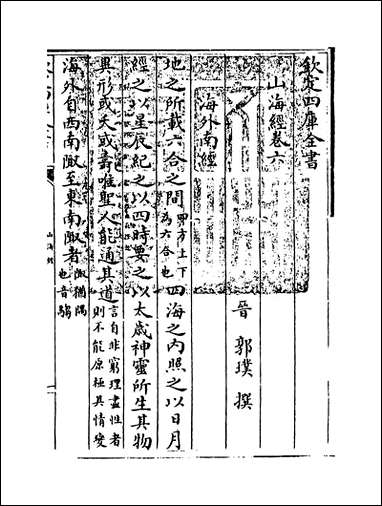 欽定四庫全書
山海經卷六
晉 郭璞 撰
海外南經
地之所載六合之間四方上下為六合也四海之内照之以日月
經之以星辰紀之以四時要之以太歳神靈所生其物
異形或夭或壽唯聖人能通其道言自非窮理盡性者則不能原極其情變
海外自西南陬至東南陬者陬猶隅也音騶
山海經